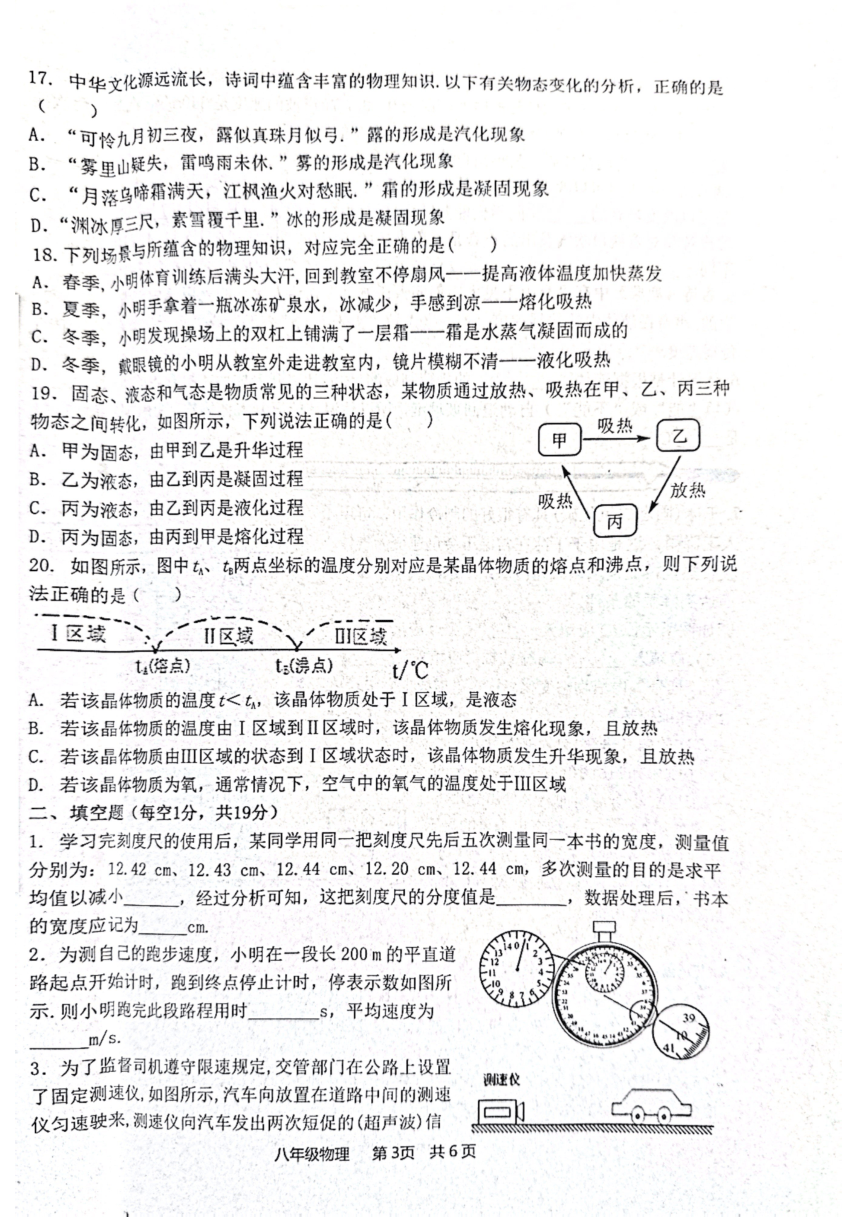 17. 中华文化源远流长，诗词中蕴含丰富的物理知识.以下有关物态变化的分析，正确的是
（　　）
A. “可怜九月初三夜，露似真珠月似弓.”露的形成是汽化现象
B. “雾里山疑失，雷鸣雨未休.”雾的形成是汽化现象
C. “月落乌啼霜满天，江枫渔火对愁眠.”霜的形成是凝固现象
D. “渊冰厚三尺，素雪覆千里.”冰的形成是凝固现象
18. 下列场景与所蕴含的物理知识，对应完全正确的是(　　)
A. 春季,小明体育训练后满头大汗,回到教室不停扇风——提高液体温度加快蒸发
B. 夏季，小明手拿着一瓶冰冻矿泉水，冰减少，手感到凉——熔化吸热
C. 冬季，小明发现操场上的双杠上铺满了一层霜——霜是水蒸气凝固而成的
D. 冬季，戴眼镜的小明从教室外走进教室内，镜片模糊不清——液化吸热
19. 固态、液态和气态是物质常见的三种状态，某物质通过放热、吸热在甲、乙、丙三种
物态之间转化，如图所示，下列说法正确的是(　　)
A. 甲为固态，由甲到乙是升华过程
B. 乙为液态，由乙到丙是凝固过程
C. 丙为液态，由乙到丙是液化过程
D. 丙为固态，由丙到甲是熔化过程
甲
吸热
乙
放热
吸热
丙
20. 如图所示，图中tA、tB两点坐标的温度分别对应是某晶体物质的熔点和沸点，则下列说
法正确的是（　　）
I区域
II区域
III区域
tA(熔点)
tB(沸点)
t/℃
A. 若该晶体物质的温度t＜tA，该晶体物质处于Ⅰ区域，是液态
B. 若该晶体物质的温度由Ⅰ区域到Ⅱ区域时，该晶体物质发生熔化现象，且放热
C. 若该晶体物质由Ⅲ区域的状态到Ⅰ区域状态时，该晶体物质发生升华现象，且放热
D. 若该晶体物质为氧，通常情况下，空气中的氧气的温度处于Ⅲ区域
二、填空题（每空1分，共19分）
1. 学习完刻度尺的使用后，某同学用同一把刻度尺先后五次测量同一本书的宽度，测量值
分别为：12.42 cm、12.43 cm、12.44 cm、12.20 cm、12.44 cm，多次测量的目的是求平
均值以减小______，经过分析可知，这把刻度尺的分度值是________，数据处理后，书本
的宽度应记为______cm.
2. 为测自己的跑步速度，小明在一段长 200 m 的平直道
路起点开始计时，跑到终点停止计时，停表示数如图所
示.则小明跑完此段路程用时________s，平均速度为
_______m/s.
39
10
41
3. 为了监督司机遵守限速规定,交管部门在公路上设置
了固定测速仪,如图所示,汽车向放置在道路中间的测速
仪匀速驶来,测速仪向汽车发出两次短促的(超声波)信
测速仪
八年级物理　第3页　共6页